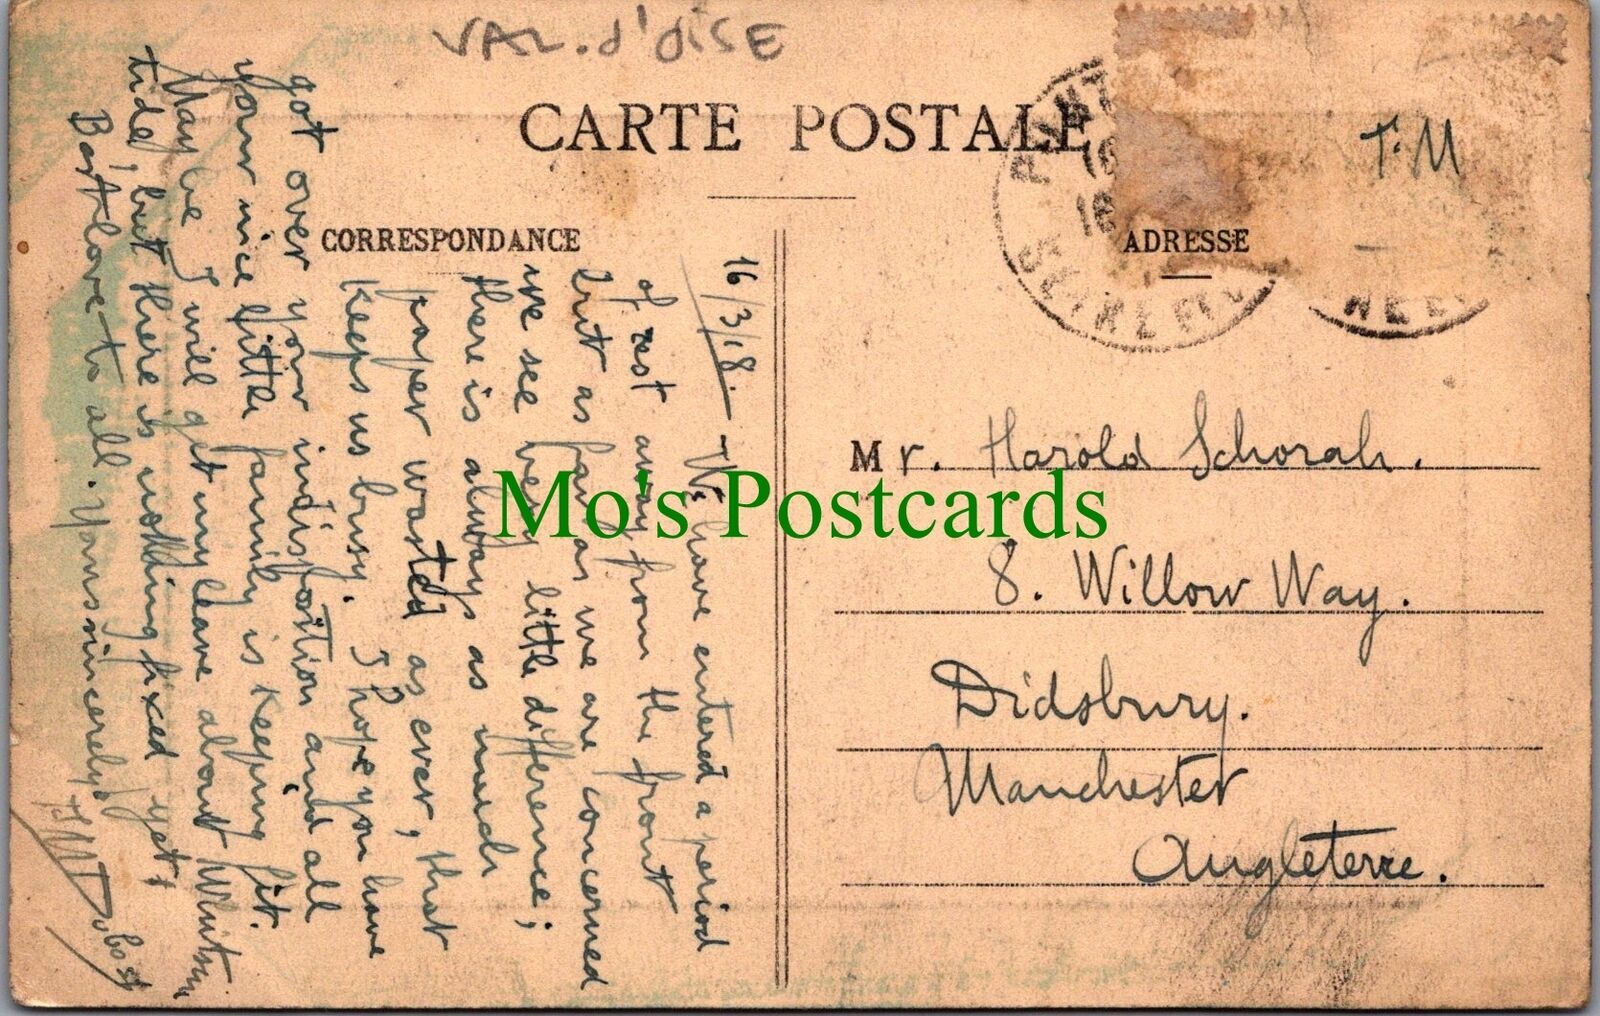 VAL. d'OISE
CARTE POSTALE
T.M
CORRESPONDANCE
ADRESSE
16/3/18. We have entered a period
of rest away from the front
but as far as we are concerned
we see very little difference;
there is always as much
paper wasted as ever, that
keeps us busy. I hope you have
got over your indisposition and all
your nice little family is keeping fit.
May be I will get my leave about Whitsun
tide, but there is nothing fixed yet.
Best love to all. Yours sincerely
Mr. Harold Schorah.
8. Willow Way.
Didsbury.
Manchester
Angleterre.
Mo's Postcards